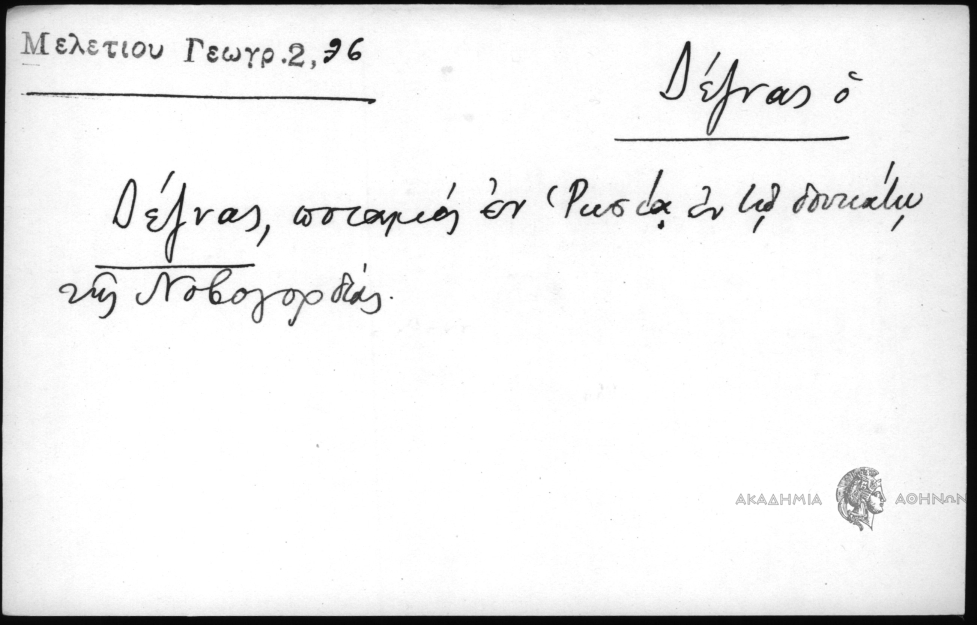 Μελετίου Γεωγρ.2, 96
Δέζνας ὁ
Δέζνας, ποταμὸς ἐν Ῥωσίᾳ ἐν τῷ δουκάτῳ
τῆς Νοβογορδίας.
ΑΚΑΔΗΜΙΑ ΑΘΗΝΩΝ